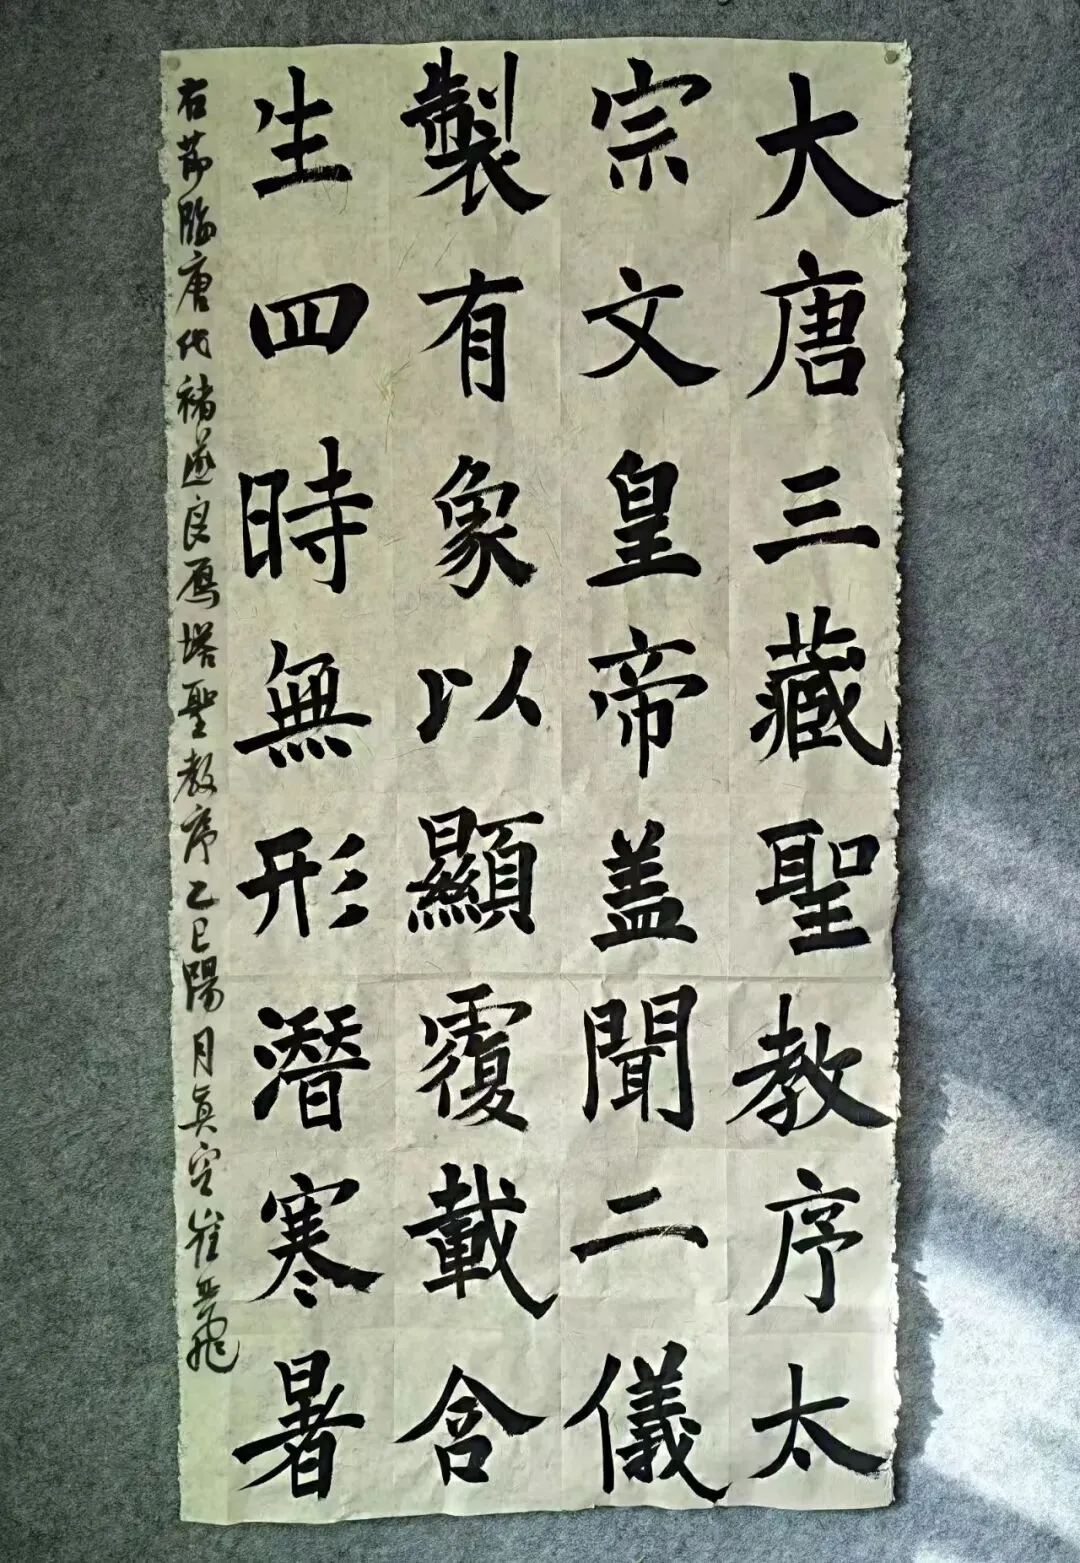 大唐三藏聖教序太
宗文皇帝盖聞二儀
製有象以顯覆載含
生四時無形潛寒暑
右节臨唐代褚遂良雁塔聖教序乙巳陽月真空崔飛